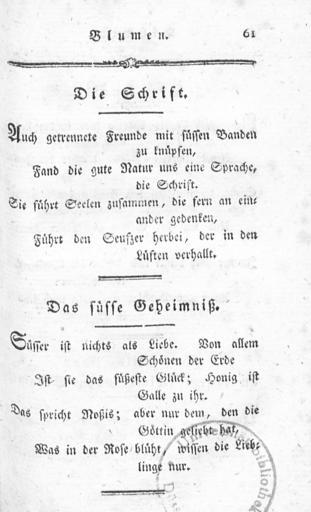 Blumen. 61
Die Schrift.
Auch getrennete Freunde mit süssen Banden
zu knüpfen,
Fand die gute Natur uns eine Sprache,
die Schrift.
Sie führt Seelen zusammen, die fern an ein-
ander gedenken,
Führt den Seufzer herbei, der in den
Lüften verhallt.
Das süsse Geheimniß.
Süsser ist nichts als Liebe. Von allem
Schönen der Erde
Ist sie das süßeste Glück; Honig ist
Galle zu ihr.
Das spricht Noßis; aber nur dem, den die
Göttin geliebt hat,
Was in der Rose blüht, wissen die Lieb-
linge nur.